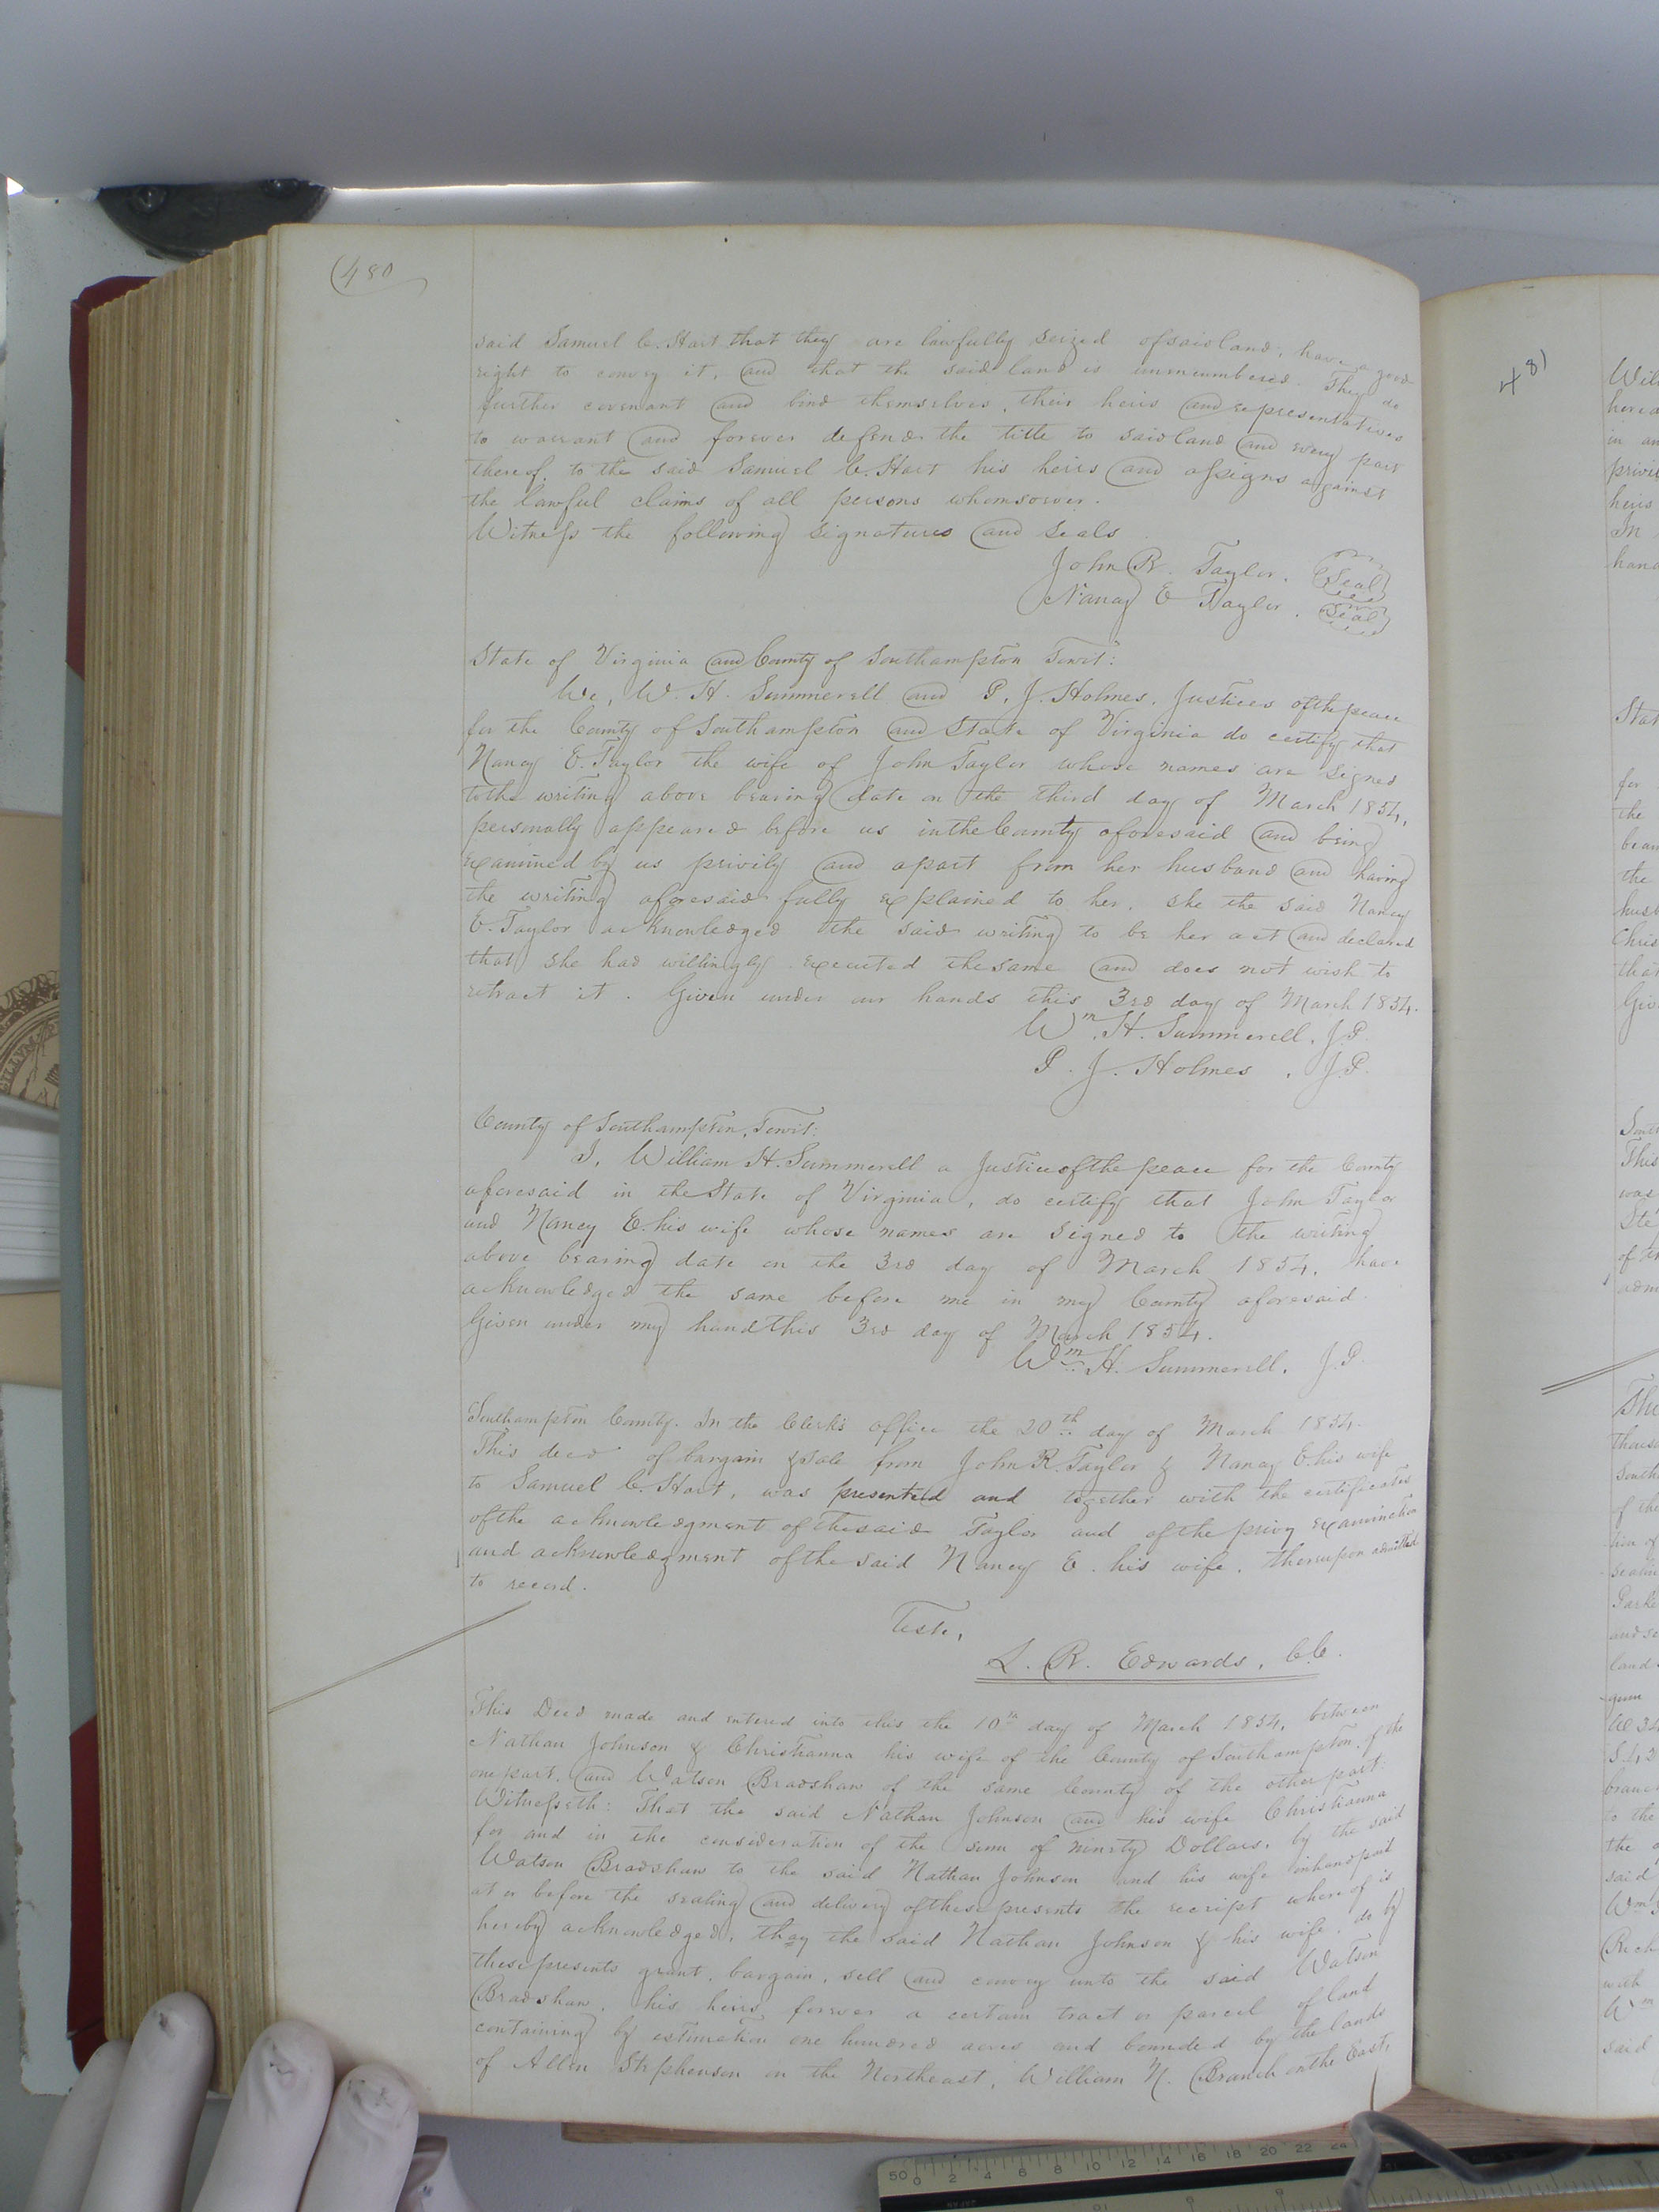 (480
said Samuel C. Hart that they are lawfully seized of said land, have a good
right to convey it, and that the said land is unincumbered. They do
further covenant and bind themselves, their heirs and representatives
to warrant and forever defend the title to said land and every part
thereof, to the said Samuel C. Hart his heirs and assigns against
the lawful claims of all persons whomsoever.
Witness the following signatures and seals
John R. Taylor. Seal
Nancy E Taylor. Seal
State of Virginia and County of Southampton Towit:
We, W. H. Summerell and P. J. Holmes, Justices of the peace
for the County of Southampton and State of Virginia do certify that
Nancy E. Taylor the wife of John Taylor whose names are signed
to the writing above bearing date on the third day of March 1854,
personally appeared before us in the County aforesaid and being
examined by us privily and apart from her husband and having
the writing aforesaid fully explained to her, she the said Nancy
E. Taylor acknowledged the said writing to be her act and declared
that she had willingly executed the same and does not wish to
retract it. Given under our hands this 3rd day of March 1854.
Wm. H. Summerell, J.P.
P. J. Holmes, J.P.
County of Southampton, Towit:
I, William H. Summerell a Justice of the peace for the County
aforesaid in the State of Virginia, do certify that John Taylor
and Nancy E. his wife whose names are signed to the writing
above bearing date on the 3rd day of March 1854, have
acknowledged the same before me in my County aforesaid.
Given under my hand this 3rd day of March 1854.
Wm. H. Summerell. J.P.
Southampton County. In the Clerk's office the 20th day of March 1854.
This deed of bargain & sale from John R. Taylor & Nancy E. his wife
to Samuel C. Hart, was presented and together with the certificates
of the acknowledgment of the said Taylor and of the privy examination
and acknowledgment of the said Nancy E. his wife, thereupon admitted
to record.
Teste,
L. R. Edwards, C.C.
This Deed made and entered into this the 10th day of March 1854, between
Nathan Johnson & Christianna his wife of the County of Southampton, of the
one part, and Watson Bradshaw of the same County of the other part:
Witnesseth: That the said Nathan Johnson and his wife Christianna
for and in the consideration of the sum of ninety Dollars, by the said
Watson Bradshaw to the said Nathan Johnson and his wife in hand paid
at or before the sealing and delivery of these presents the receipt whereof is
hereby acknowledged, they the said Nathan Johnson & his wife, do by
these presents grant, bargain, sell and convey unto the said Watson
Bradshaw, his heirs forever a certain tract or parcel of land
containing by estimation one hundred acres and bounded by the lands
of Allen Stephenson on the Northeast, William N. Branch on the East,
481